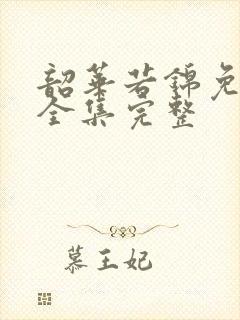 韶华若锦免
全集完整
慕王妃